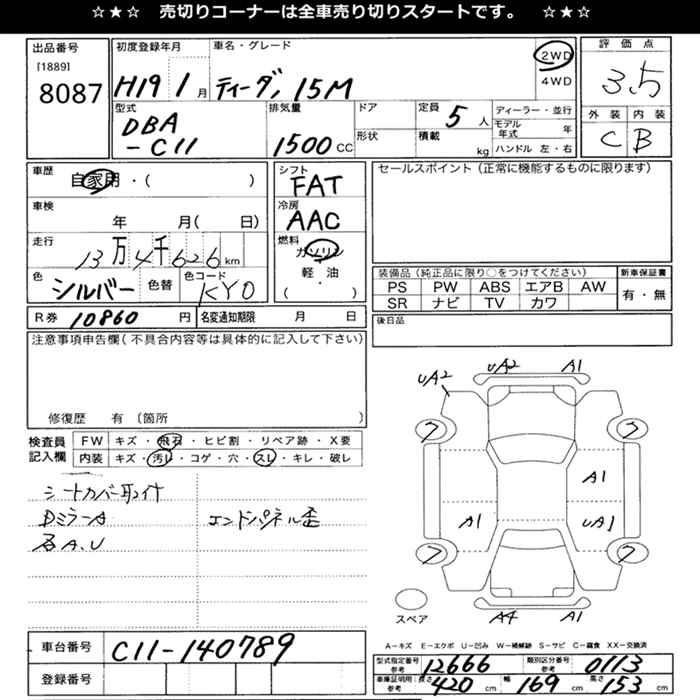 ☆★☆ 売切りコーナーは全車売り切りスタートです。 ☆★☆
出品番号
[1889]
8087
初度登録年月
H19 1月
車名・グレード
ティーダ, 15M
2WD
4WD
評価点
3.5
外装 内装
C B
型式
DBA
-C11
排気量
1500 CC
ドア
形状
定員
5人
積載
kg
ディーラー・並行
モデル年式 年
ハンドル 左・右
車歴
自家用・( )
車検
年 月( 日)
走行
13万4千626km
色
シルバー
色替
色コード
KY0
シフト
FAT
冷房
AAC
燃料
ガソリン
軽油
・
( )
セールスポイント(正常に機能するものに限ります)
装備品(純正品に限り○をつけてください)
PS PW ABS エアB AW
SR ナビ TV カワ
新車保証書
有・無
R券 10860円
名変通知期限 月 日
後日品
注意事項申告欄(不具合内容等は具体的に記入して下さい)
修復歴 有 〔箇所 〕
検査員
記入欄
FW キズ・飛石・ヒビ割・リペア跡・X要
内装 キズ・汚れ・コゲ・穴・スレ・キレ・破レ
シートカバー取付
DミラーA
各A.U
エンドパネル歪
UA2 UA2 A1
7 7
A1
A1 UA1
7 7
スペア
A4 A1
車台番号 C11-140789
登録番号
A-キズ E-エクボ U-凹み W-補修跡 S-サビ C-腐食 XX-交換済
型式指定番号 参考 12666
類別区分番号 参考 0113
車庫証明用:長さ 参考 420cm
幅 169cm
高さ 参考 153cm